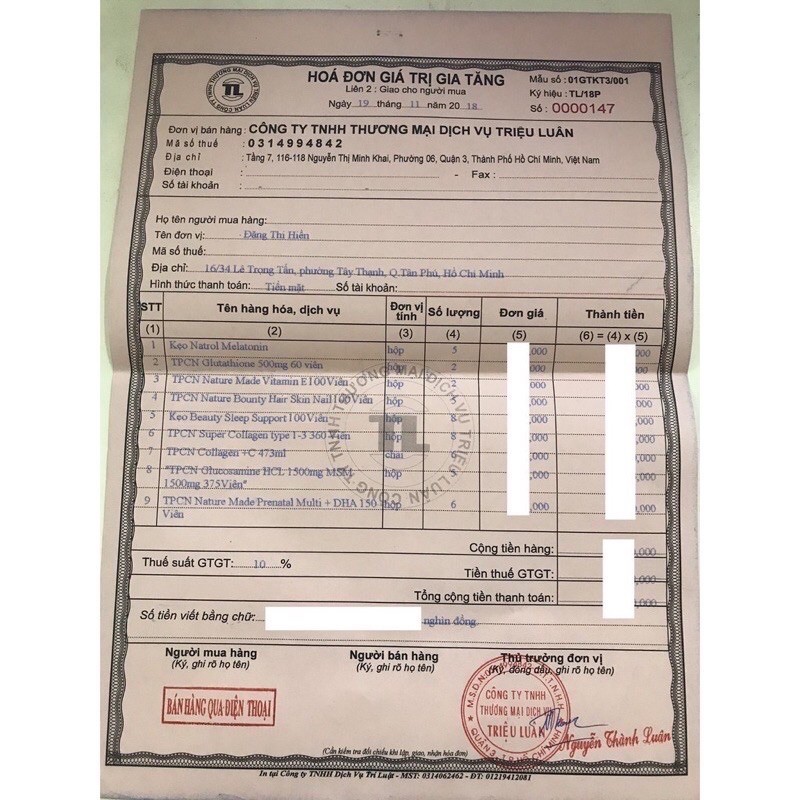 HOÁ ĐƠN GIÁ TRỊ GIA TĂNG
Liên 2 : Giao cho người mua
Ngày 19 tháng 11 năm 2018
Mẫu số : 01GTKT3/001
Ký hiệu : TL/18P
Số : 0000147
Đơn vị bán hàng : CÔNG TY TNHH THƯƠNG MẠI DỊCH VỤ TRIỆU LUÂN
Mã số thuế : 0314994842
Địa chỉ : Tầng 7, 116-118 Nguyễn Thị Minh Khai, Phường 06, Quận 3, Thành Phố Hồ Chí Minh, Việt Nam
Điện thoại : - Fax :
Số tài khoản :
Họ tên người mua hàng:
Tên đơn vị: Đặng Thi Hiền
Mã số thuế:
Địa chỉ: 16/34 Lê Trọng Tấn, phường Tây Thạnh, Q.Tân Phú, Hồ Chí Minh
Hình thức thanh toán: Tiền mặt Số tài khoản:
STT Tên hàng hóa, dịch vụ Đơn vị tính Số lượng Đơn giá Thành tiền
(1) (2) (3) (4) (5) (6) = (4) x (5)
1 Kẹo Natrol Melatonin hộp 5 ,000 ,000
2 TPCN Glutathione 500mg 60 viên hộp 2 ,000 ,000
3 TPCN Nature Made Vitamin E100Viên hộp 2 ,000 ,000
4 TPCN Nature Bounty Hair Skin Nail 100Viên hộp ,000 ,000
5 Kẹo Beauty Sleep Support 100Viên hộp 8 ,000 ,000
6 TPCN Super Collagen type 1-3 360 Viên hộp 8 ,000 ,000
7 TPCN Collagen +C 473ml chai 6 ,000 ,000
8 "TPCN Glucosamine HCL 1500mg MSM hộp ,000 ,000
1500mg 375Viên"
9 TPCN Nature Made Prenatal Multi + DHA 150 hộp 6 ,000 ,000
Viên
Cộng tiền hàng: ,000
Thuế suất GTGT: 10 % Tiền thuế GTGT: ,000
Tổng cộng tiền thanh toán: ,000
Số tiền viết bằng chữ: nghìn đồng.
Người mua hàng Người bán hàng Thủ trưởng đơn vị
(Ký, ghi rõ họ tên) (Ký, ghi rõ họ tên) (Ký, đóng dấu, ghi rõ họ tên)
BÁN HÀNG QUA ĐIỆN THOẠI
CÔNG TY TNHH
THƯƠNG MẠI DỊCH VỤ
TRIỆU LUÂN
Nguyễn Thành Luân
(Cần kiểm tra đối chiếu khi lập, giao, nhận hóa đơn)
In tại Công ty TNHH Dịch Vụ Trí Luật - MST: 0314062462 - ĐT: 01219412081